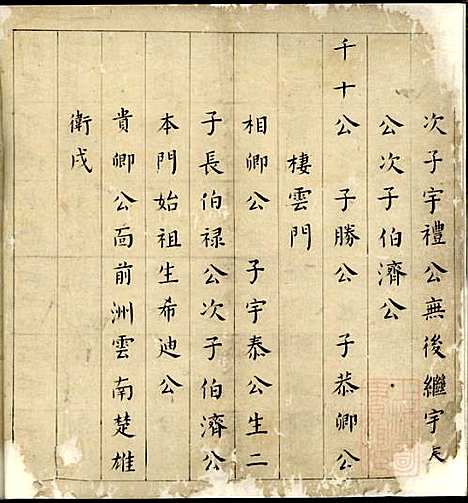 次子宇禮公無後繼宇
公次子伯濟公
千十公 子勝公 子恭卿公
棲雲門
相卿公 子宇泰公生二
子長伯祿公次子伯濟公
本門始祖生希迪公
貴卿公 前洲雲南楚雄
衛戌